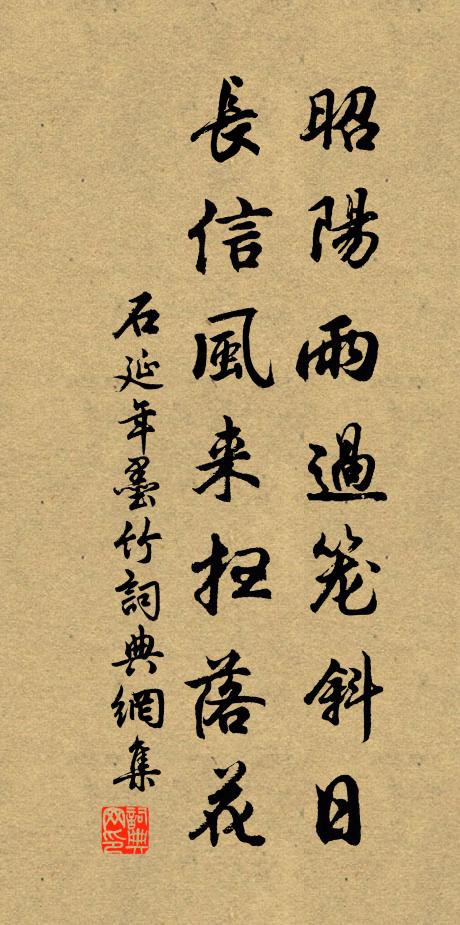 昭陽雨過笼斜日
長信風来扫落花
石延年墨竹詞典網集
詞典網印